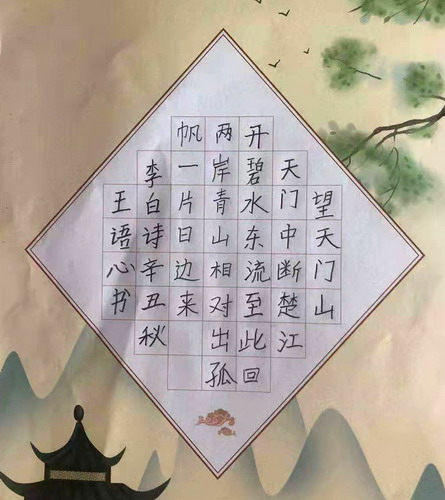 望天门山
天门中断楚江
开碧水东流至此回
两岸青山相对出孤
帆一片日边来
李白诗辛丑秋
王语心书